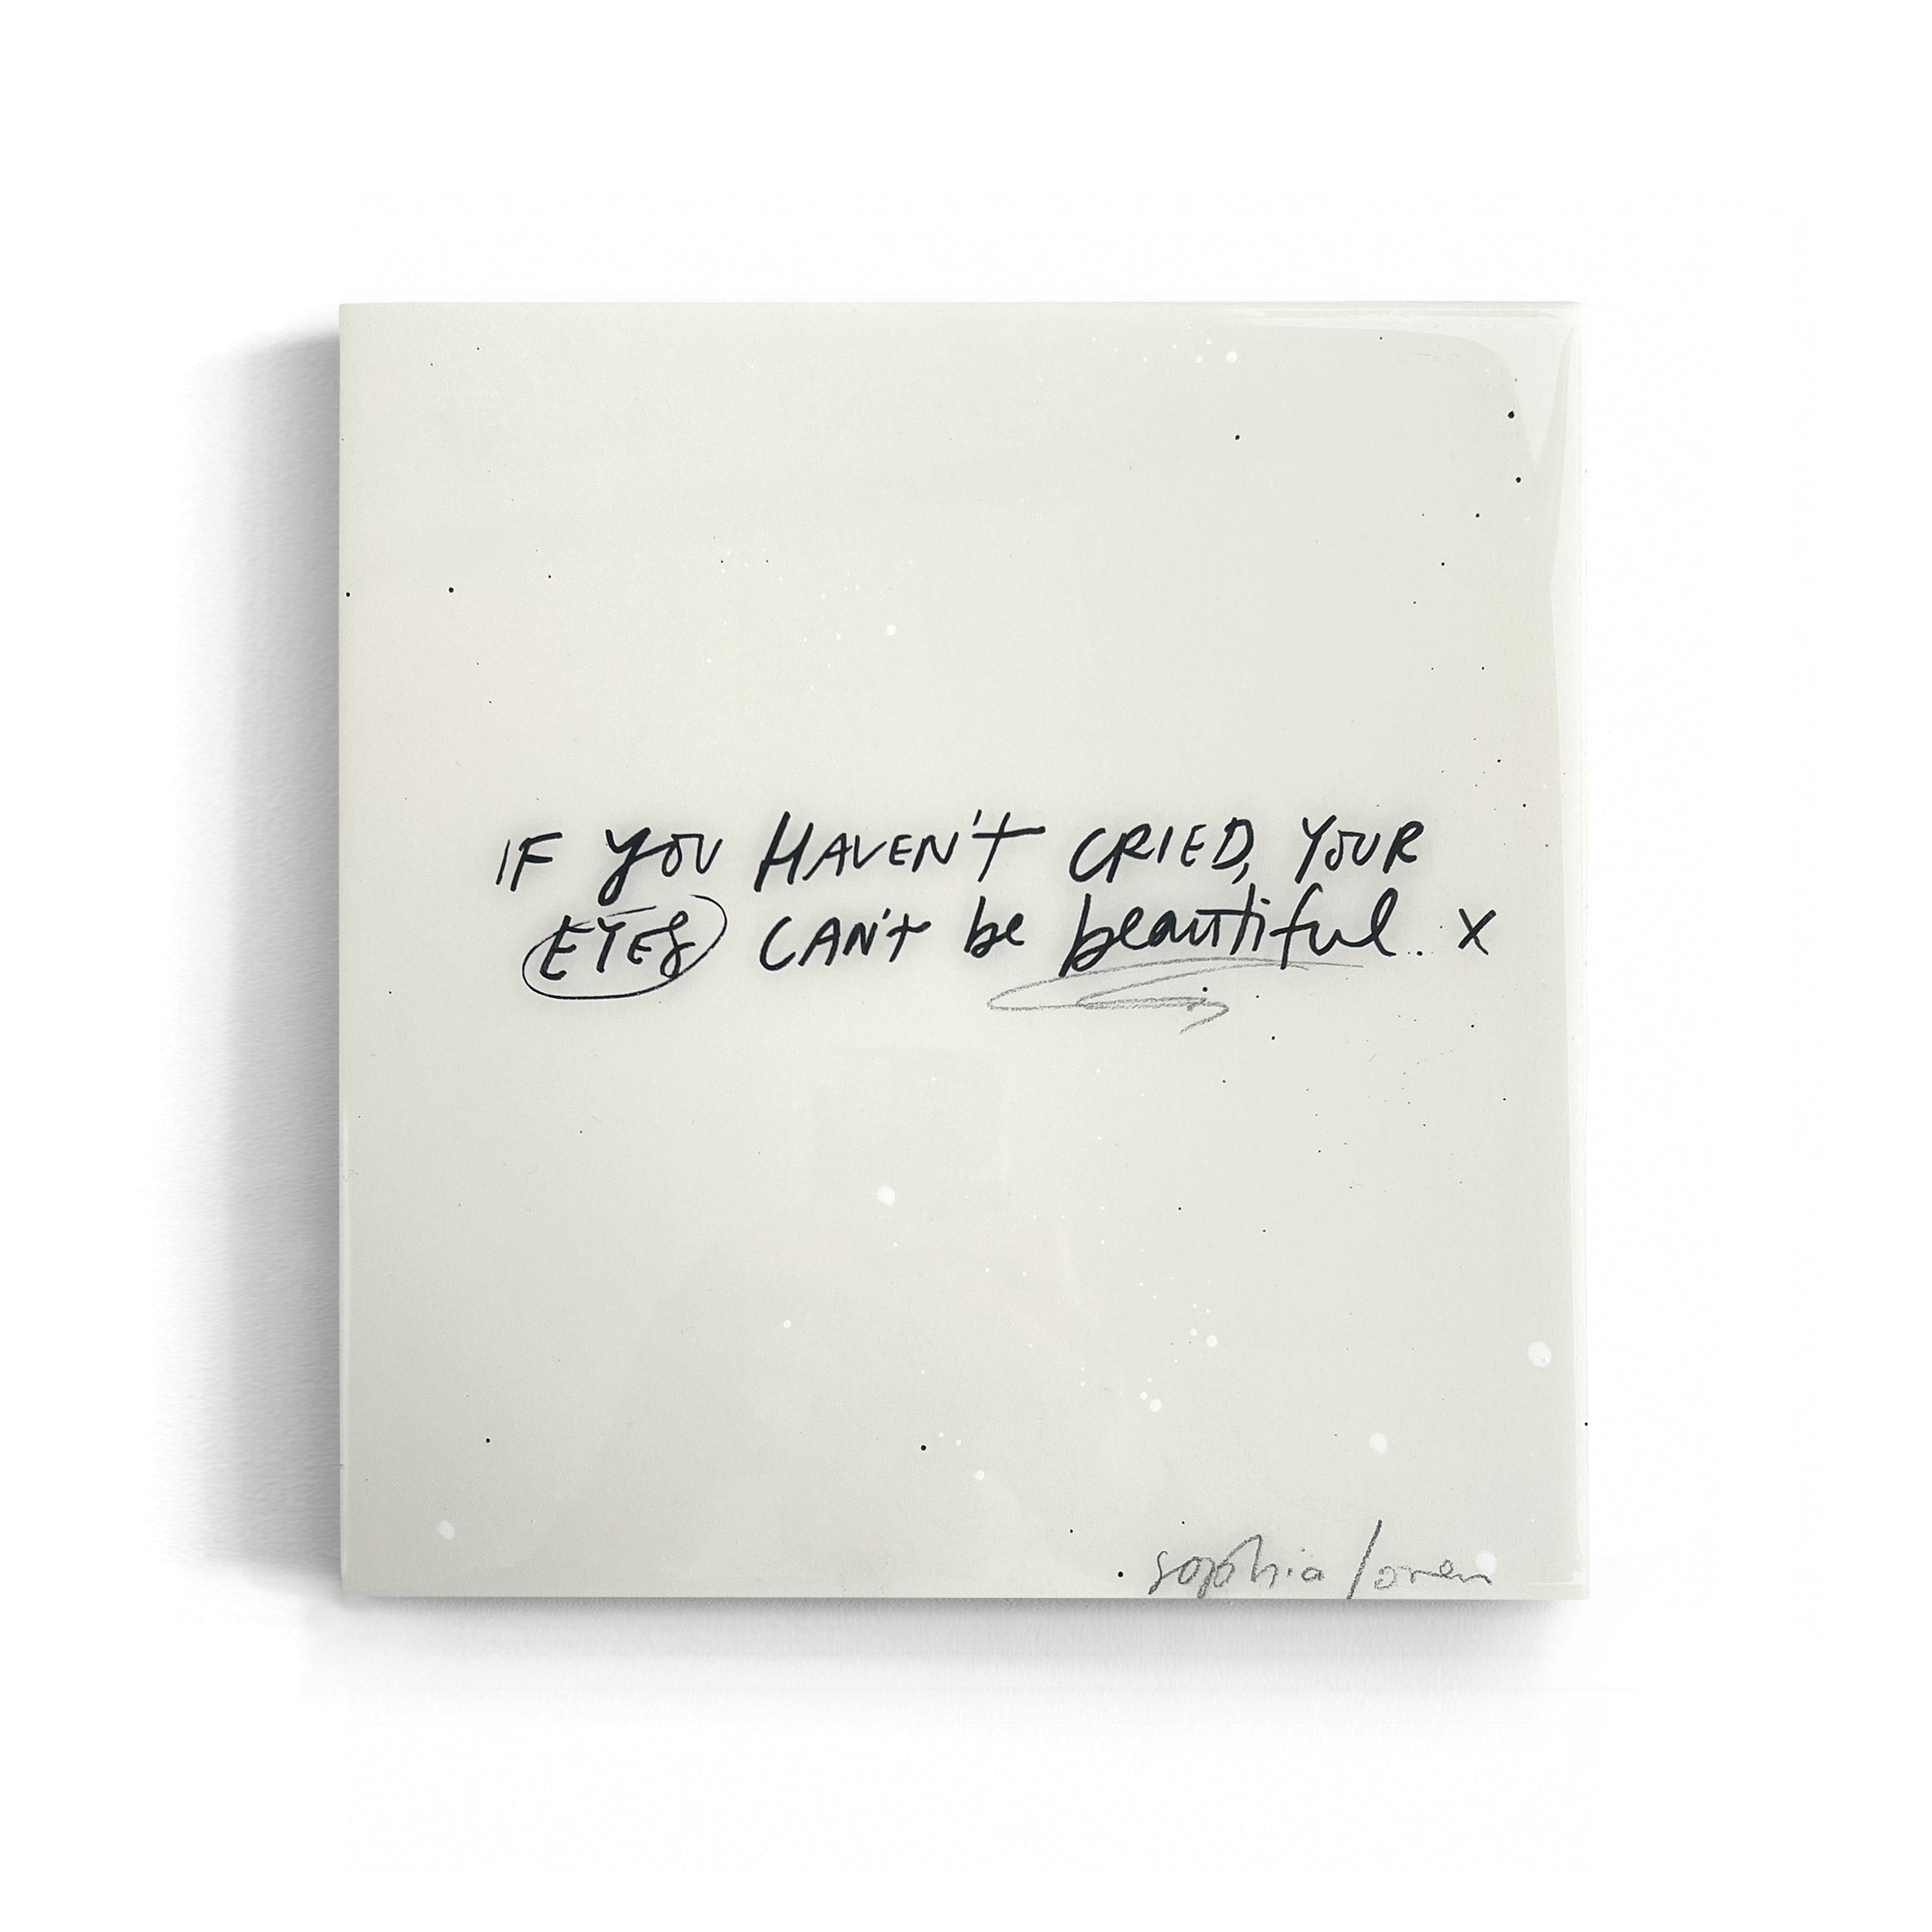 IF YOU HAVEN'T CRIED, YOUR
EYES CAN'T be beautiful. X
sophia loren